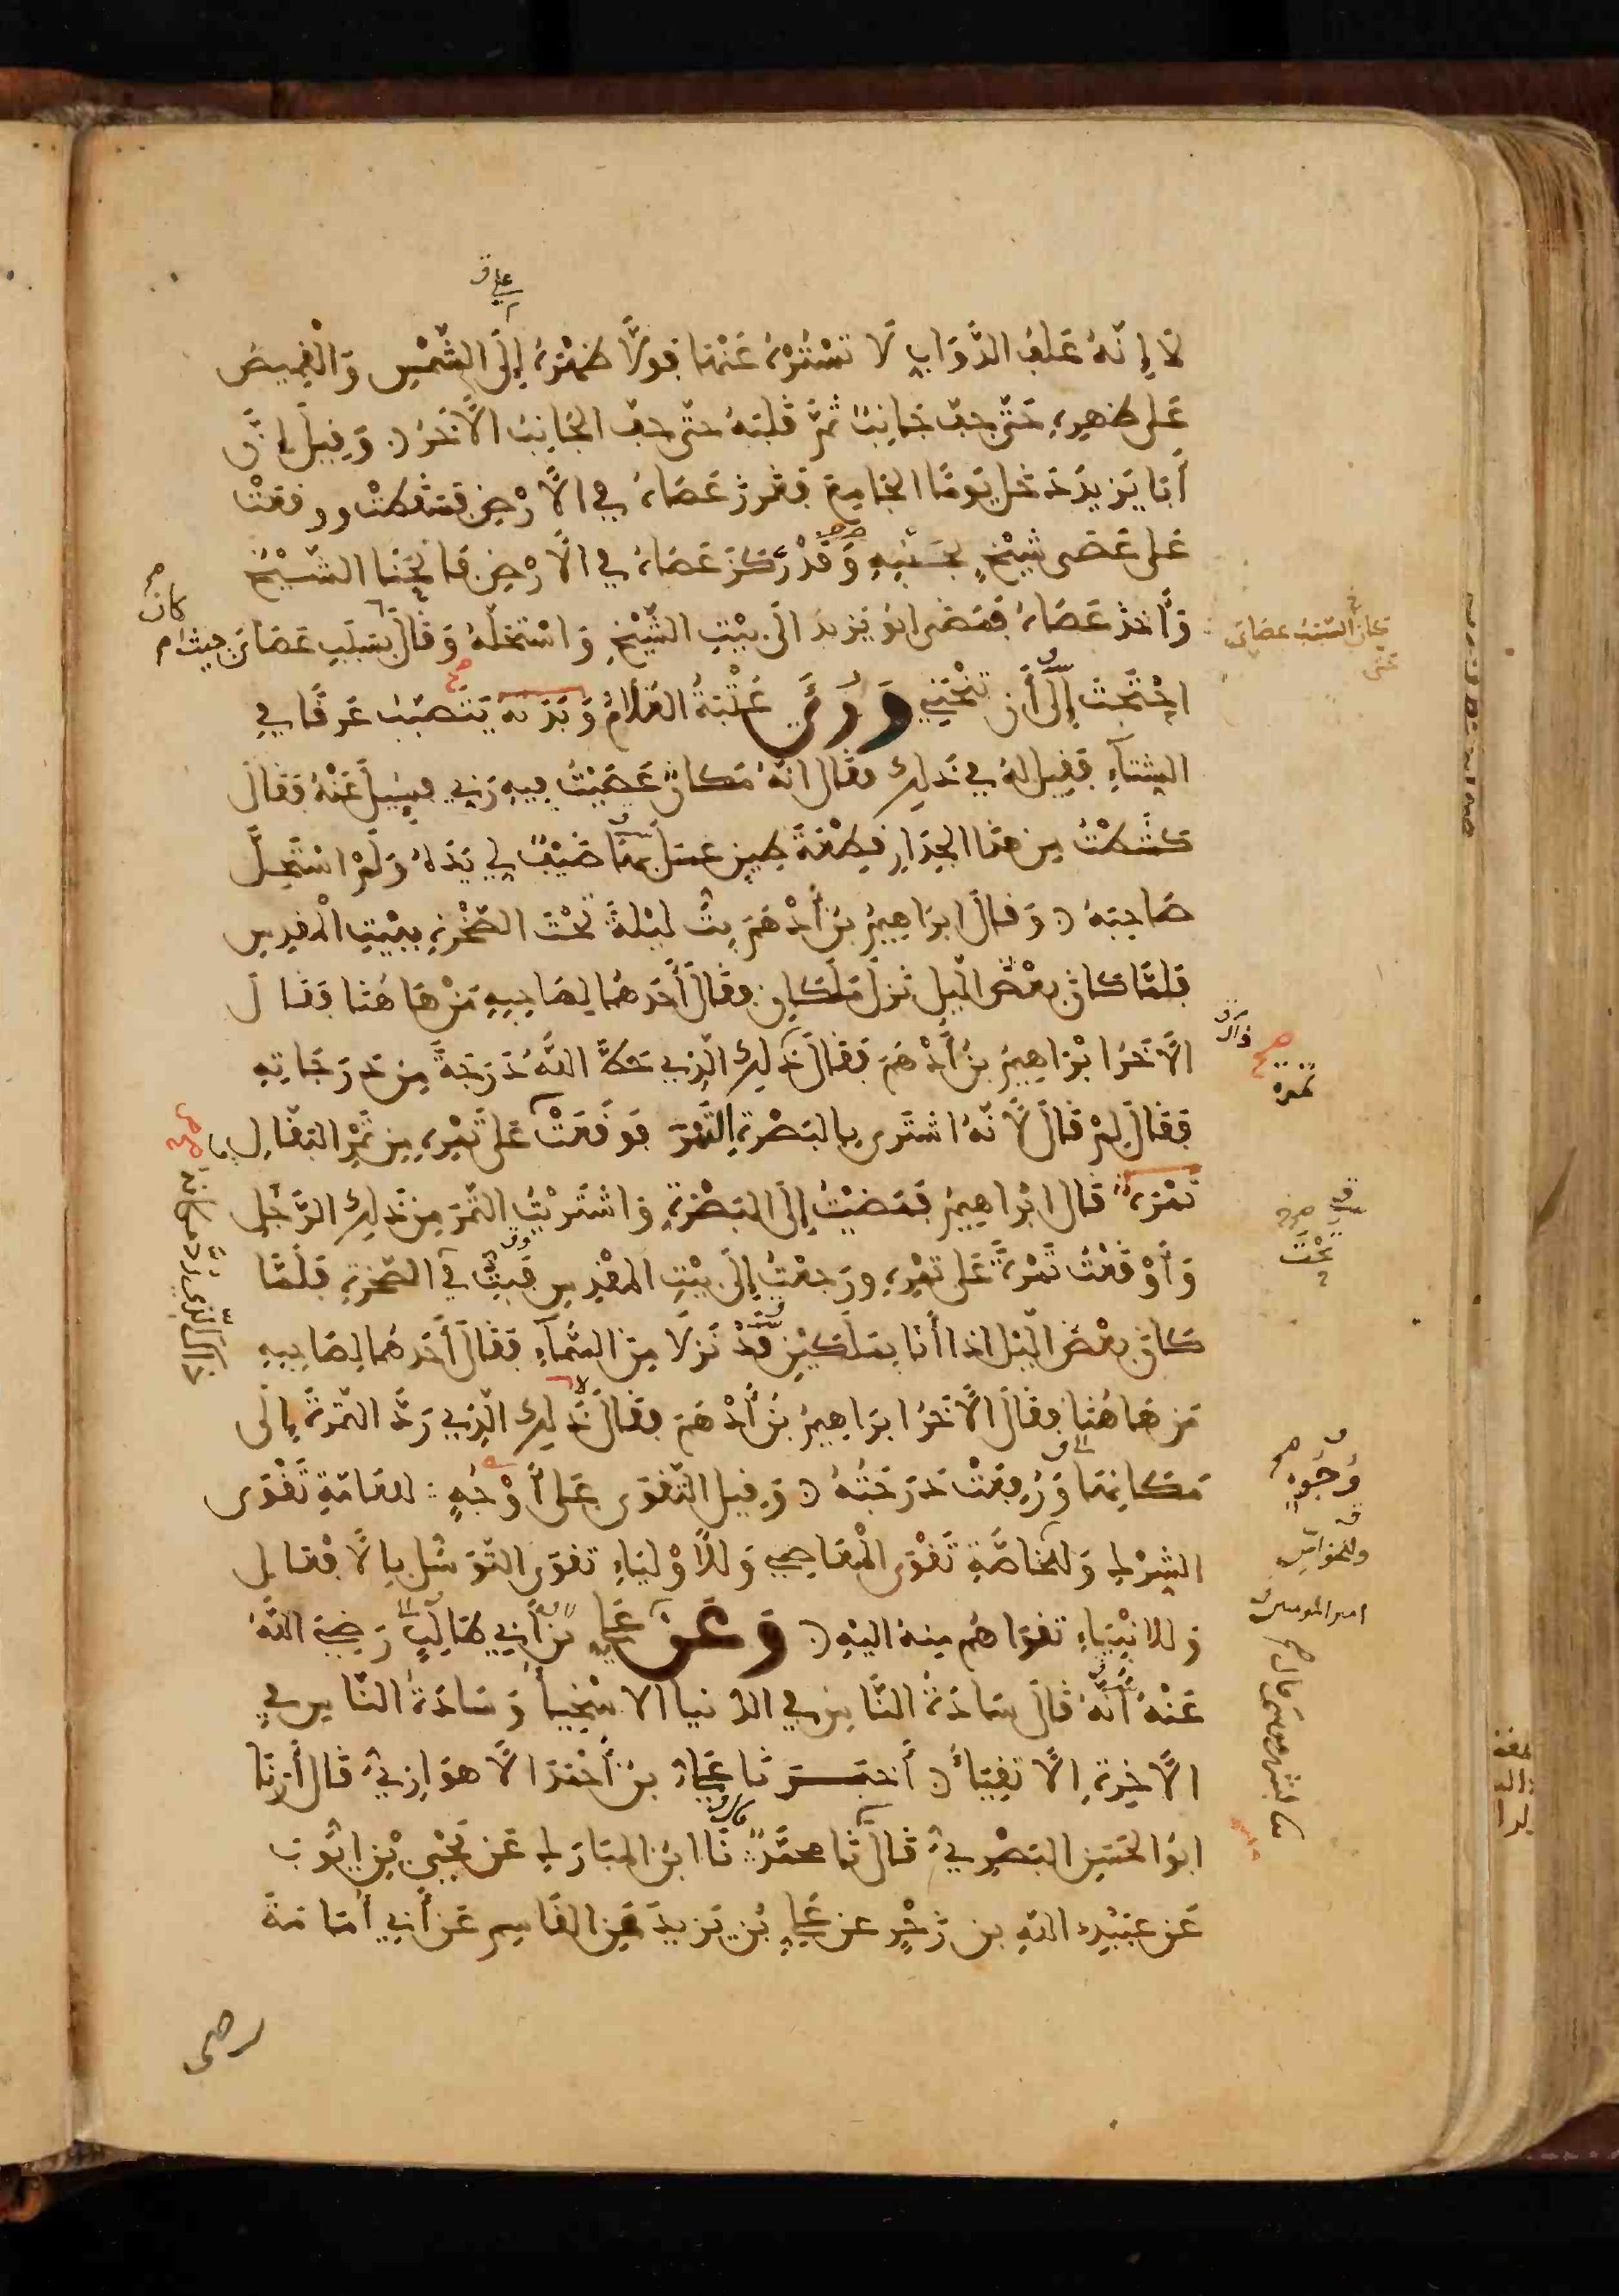 لا إنّهُ عَلَفُ الدَّوَابِ لَا تَسْتُرْهُ عَنْهَا فولَّا ظهْرَهُ إلَى الشّمْسِ وَالْقمِيصُ
عَلى ظهرهِ حَتّى جفّ جَانِبٌ ثمّ قلبَهُ حتّى جفّ الجَانِبُ الْآخَرُ وَقِيلَ إنّ
أبَا يَزِيدَ دَخلَ يَوْمًا الجَامِعَ فغرزَ عَصَاهُ في الأرْضِ فسَقطتْ ووقعَتْ
عَلى عَصَى شيْخٍ بجَنْبِهِ وَقَدْ رَكَزَ عَصَاهُ في الأرْضِ فانحَنا الشّيْخُ
وَأخذَ عَصَاهُ فمَضَى ابو يَزيدَ الَى بيْتِ الشّيْخِ وَاسْتحَلّهُ وَقالَ بسَبَبِ عَصَايَ حيث
احْتَجْتَ إلَى أَن تَنْحَنِيَ وَرُئِيَ عُتْبَةُ الغُلَامُ وَبَدَنه يَتَصَبّبُ عَرقًا في
الشتاءِ فقِيلَ لهُ في ذلِك فقالَ انّهُ مَكَانٌ عَصَيْتُ فِيهِ رَبّي فسُئِلَ عَنْهُ فَقَالَ
كَشَطْتُ مِن هذَا الجدَارِ قطْعَةَ طِينٍ غسَلَ بهَا ضَيْفٌ لي يَدَهُ وَلَمْ اسْتَحِلَّ
صَاحِبَهُ وَقالَ ابرَاهِيمُ بنُ أدْهَمَ بتُّ ليْلةً تحْتَ الصّخْرةِ ببَيْتِ المْقدِسِ
فلمّا كانَ بعْضُ الّيلِ نزلَ مَلَكَانِ فقالَ أحَدهُمَا لِصَاحِبهِ مَنْ هَا هُنَا فقالَ
الآخَرُ ابْرَاهِيمُ بنُ أدْهَمَ فقالَ ذلِك الّذِي حَطَّ اللهُ دَرَجَةً مِن دَرَجَاتِهِ
فقالَ لِمَ قالَ لأنّهُ اشترى بالبَصْرةِ التّمْرَ فوَقَعَتْ عَلى تَمْرهِ مِن تَمْرِ البَقّالِ
تَمْرَة قالَ ابْرَاهِيمُ فمَضَيْتُ إلَى البَصْرَةِ وَاشترَيْتُ التّمْرَ مِن ذلِك الرّجُلِ
وَأوْقَعْتُ تَمْرَةً عَلى تمْرهِ ورَجعْتُ إلَى بيْتِ المقْدِسِ فبِتُّ في الصّخرةِ فلَمَّا
كانَ بعْضُ الّيْلِ اذا أنَا بمَلَكَيْنِ قَدْ نَزلَا مِنَ السّمَاءِ فقالَ أحَدهُمَا لِصَاحِبهِ
مَن هَاهُنَا فقالَ الآخَرُ ابرَاهِيمُ بنُ أدْهَمَ فقالَ ذَلِك الّذِي رَدَّ التّمْرةَ إلَى
مَكَانِهَا وَرُفِعَتْ دَرَجَتُهُ وَقِيلَ التّقوَى عَلى أوْجُهٍ للعَامّةِ تَقْوَى
الشِرْكِ وَللخَاصَّةِ تَقْوَى المْعَاصِي وَللأوْليَاءِ تقوَى التّوَسُّلِ بالأفْعَالِ
وَللانْبيَاءِ تقوَاهُم مِنهُ اليْهِ وَعَن عَلِيّ بْنِ أبي طَالِبٍ رَضِيَ اللهُ
عَنْهُ أنّهُ قالَ سَادَةُ النّاسِ في الدّنيا الاسْخِيَاءُ وَسَادَةُ النّاسِ في
الآخِرَةِ الأتقِيَاءُ أخبَرَنَا عَلِيُّ بنُ أحْمَدَ الأهوَازِيُّ قالَ أرنَا
ابُو الحسَينِ البَصْرِيُّ قالَ نَا محمَّدٌ نَا ابنُ المُبَارَكِ عَن يَحْيَى بْنِ ايُّوبَ
عَن عبَيْدِ اللهِ بن زَحْرٍ عن عَلِيّ بْنِ يَزيدَ عَنِ القَاسِمِ عَن أبي أمَامَةَ
رضى
كان
وُجُوهٍ
تحْتَ
وللخواصّ
امير المومنين